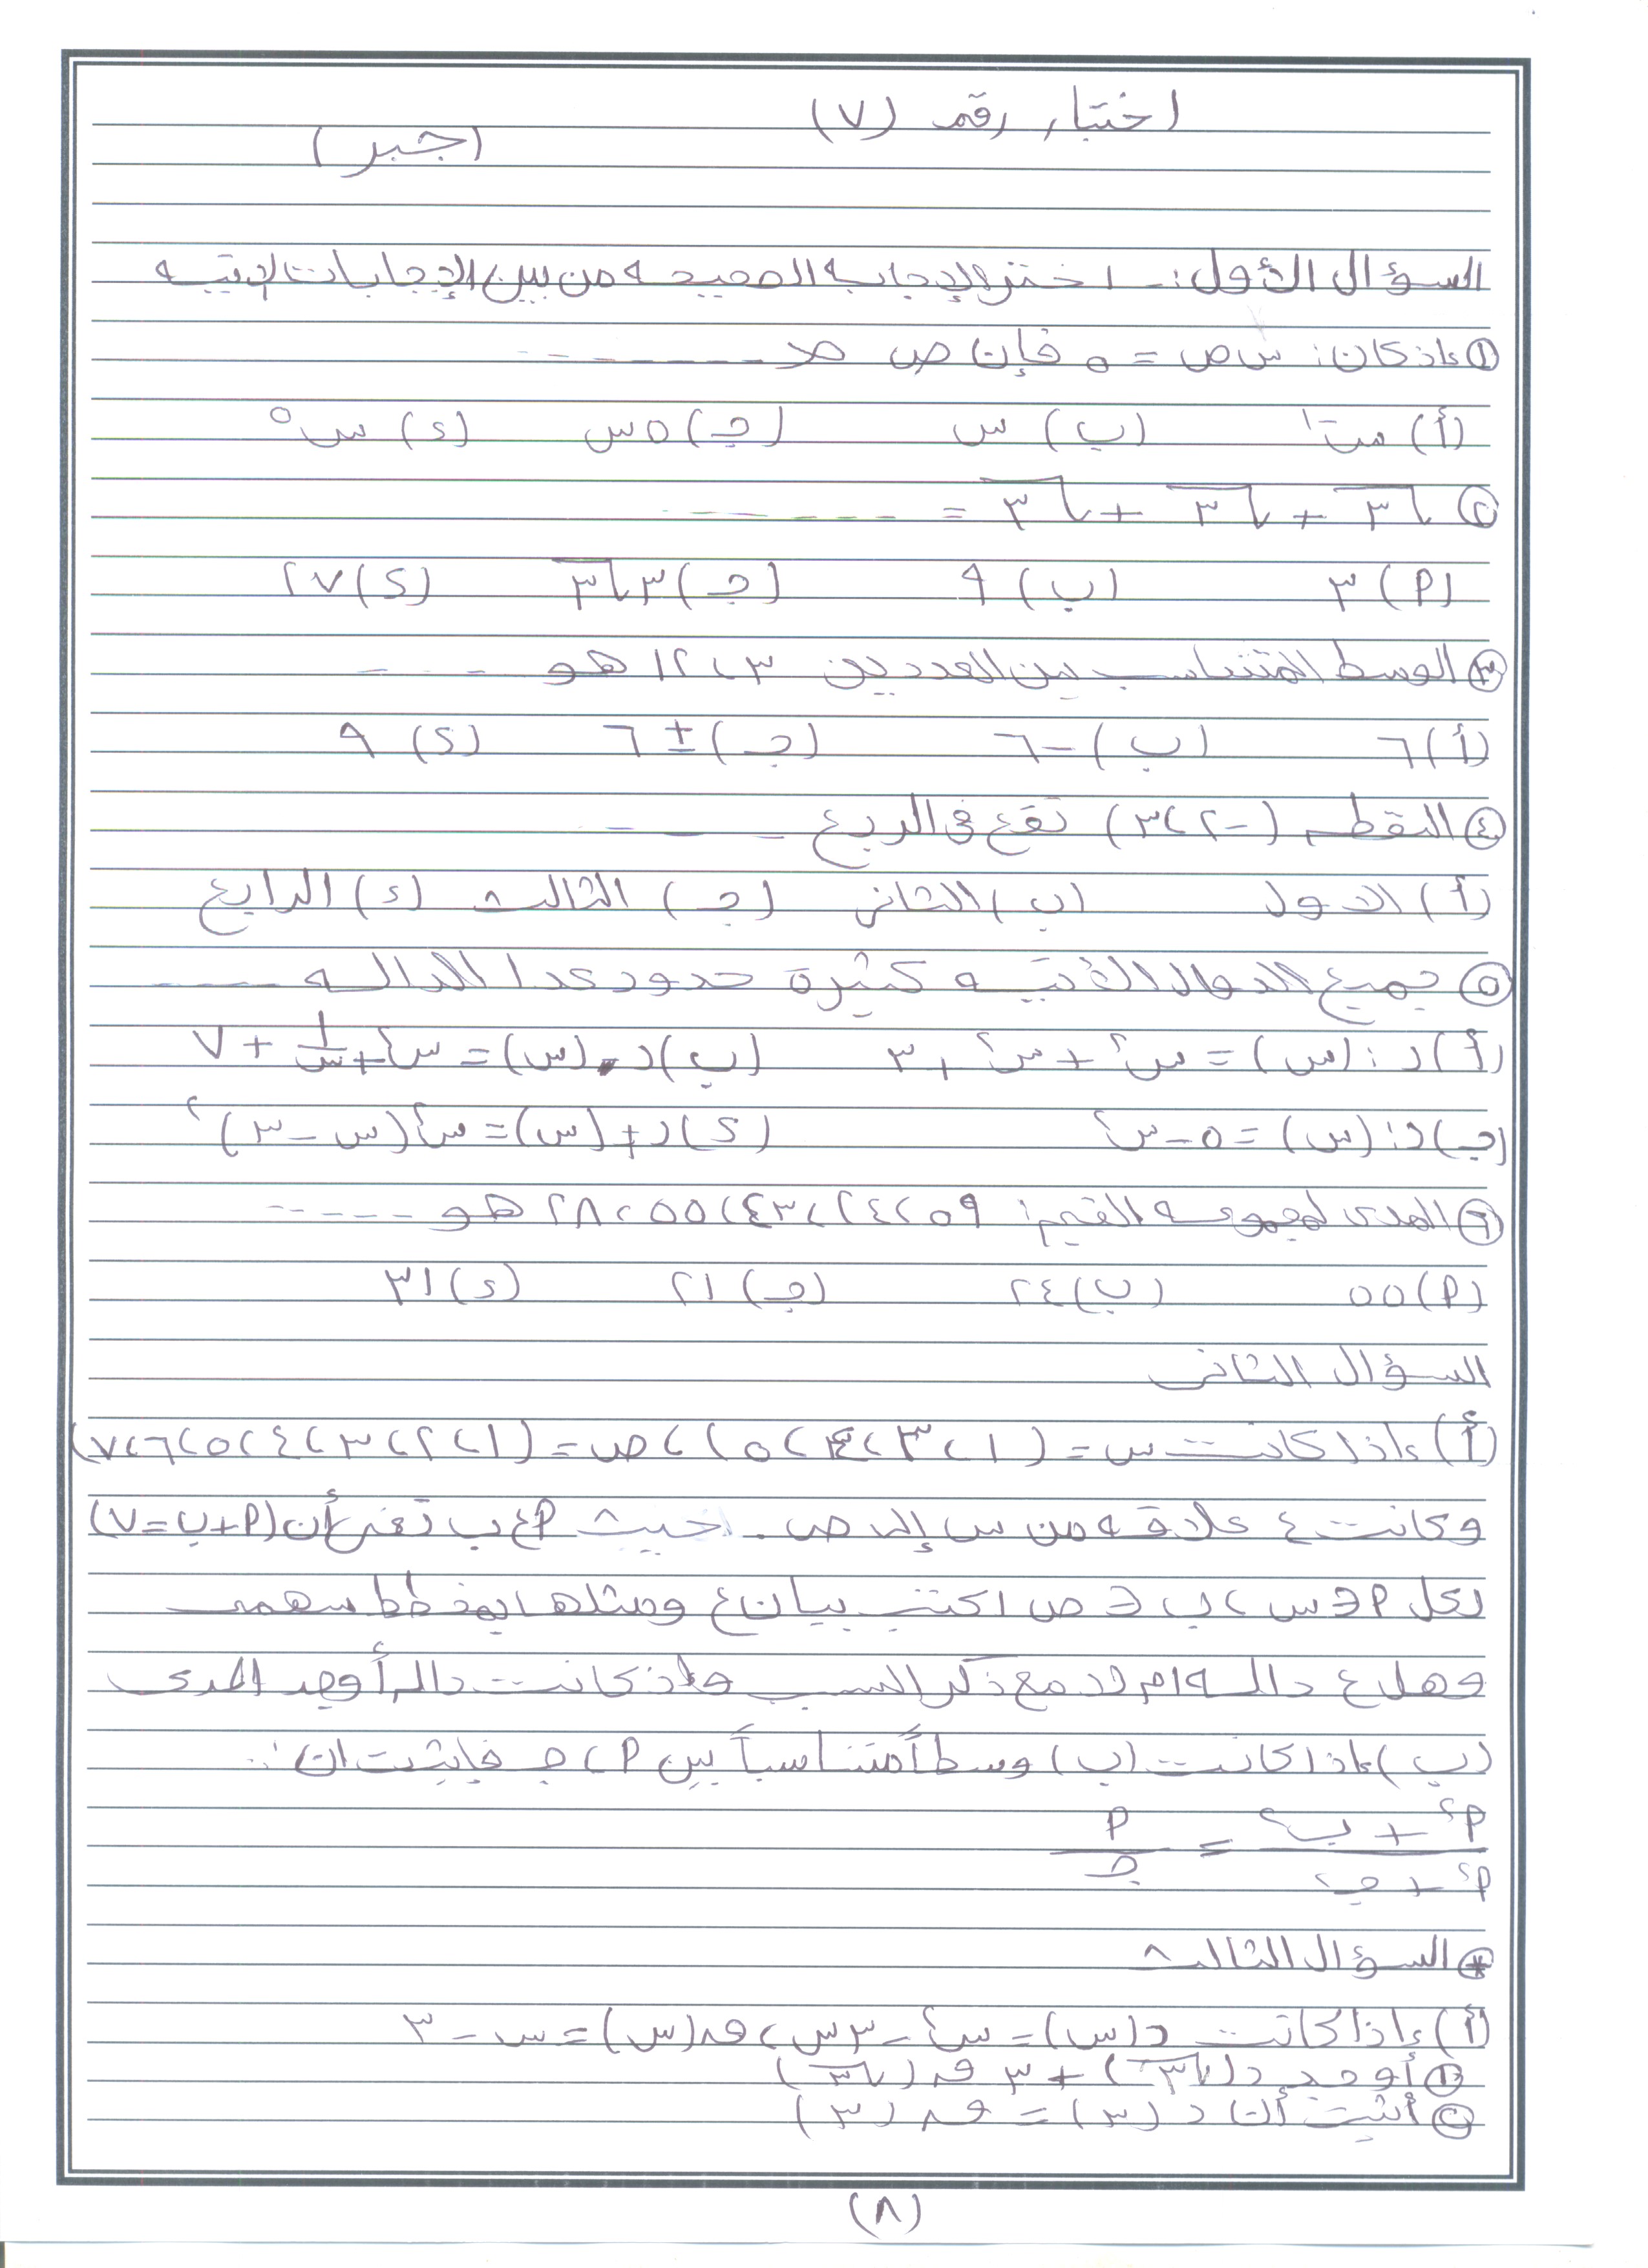 اختبار رقم (٧)
(جبر)
السؤال الأول:- اختر الإجابه الصحيحه من بين الإجابات الاتيه
① إذ كان: س ص = ٥ فإن ص ∝ -------
(أ) س⁻¹ (ب) س (جـ) ٥س (د) س°
② √٣ + √٣ + √٣ = ------
(أ) ٣ (ب) ٩ (جـ) ٣√٣ (د) ٢٧
③ الوسط المتناسب بين العددين ٣، ١٢ هو ----
(أ) ٦ (ب) -٦ (جـ) ± ٦ (د) ٩
④ النقطه (-٢، ٣) تقع في الربع ----
(أ) الاول (ب) الثاني (جـ) الثالث (د) الرابع
⑤ جميع الدوال الأتيه كثيرة حدود عدا الداله ----
(أ) د: (س) = س² + س² + ٣ (ب) د (س) = س² + ١/س + ٧
(جـ) د: (س) = ٥ - س² (د) د: (س) = س² (س - ٣)²
⑥ المدى لمجموعه القيم: ٥٩، ٤٢، ٤٣، ٥٥، ٢٨ هو -----
(أ) ٥٥ (ب) ٢٤ (جـ) ٢١ (د) ٣١
السؤال الثاني
(أ) إذا كانت س = (١، ٣، ٤، ٥)، ص = (١، ٢، ٣، ٤، ٥، ٦، ٧)
وكانت ع علاقه من س إلى ص. حيث أ ع ب تعني أن (أ + ب = ٧)
لكل أ ∈ س، ب ∈ ص اكتب بيان ع ومثلها بمخطط سهمى
وهل ع داله ام لا مع ذكر السبب وإذ كانت داله أوجد المدى
(ب) إذا كانت (ب) وسطاً متناسباً بين أ، جـ فاثبت ان:
أ² + ب² / ب² + جـ² = أ / جـ
* السؤال الثالث
(أ) إذا كانت د (س) = س² - ٣س، مر (س) = س - ٣
① أوجد د (√٣) + ٣ مر (√٣)
② أثبت أن د (٣) = مر (٣)
(٨)